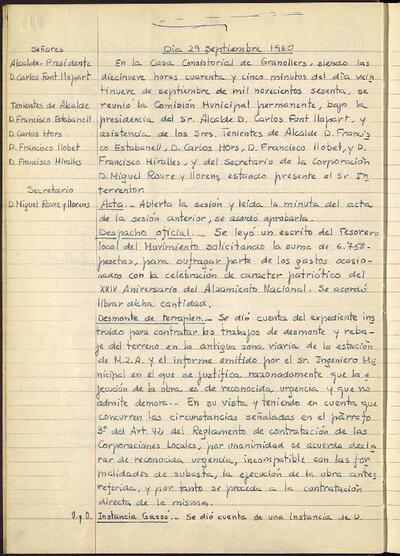 Señores
Alcalde-Presidente
D. Carlos Font Llopart
Tenientes de Alcalde
D. Francisco Estabanell
D. Carlos Hors
D. Francisco Llobet
D. Francisco Miralles
Secretario
D. Miguel Roure y Llorens
Día 29 Septiembre 1960
En la Casa Consistorial de Granollers, siendo las
diecinueve horas cuarenta y cinco minutos del día vein
tinueve de septiembre de mil novecientos sesenta, se
reunió la Comisión Municipal permanente, bajo la
presidencia del Sr. Alcalde D. Carlos Font Llopart, y
asistencia de los Sres. Tenientes de Alcalde D. Francis
co Estabanell, D. Carlos Hors, D. Francisco Llobet, y D.
Francisco Miralles, y del Secretario de la Corporación
D. Miguel Roure y Llorens, estando presente el Sr. In
terventor.
Acta.- Abierta la sesión y leída la minuta del acta
de la sesión anterior, se acordó aprobarla.
Despacho oficial.- Se leyó un escrito del Tesorero
local del Movimiento solicitando la suma de 6.750-
pesetas, para sufragar parte de los gastos ocasio
nados con la celebración de caracter patriótico del
XXIV Aniversario del Alzamiento Nacional. Se acordó
librar dicha cantidad.
Desmonte de terraplen.- Se dió cuenta del expediente ins
truido para contratar los trabajos de desmonte y reba
je del terreno en la antigua zona viaria de la estación
de M.Z.A. y el informe emitido por el Sr. Ingeniero Mu
nicipal en el que se justifica razonadamente que la e
jecución de la obra es de reconocida urgencia y que no
admite demora.- En su vista y teniendo en cuenta que
concurren las circunstancias señaladas en el párrafo
3º del Art. 42 del Reglamento de contratación de las
Corporaciones Locales, por unanimidad se acuerda decla
rar de reconocida urgencia, incompatible con las for
malidades de subasta, la ejecución de la obra antes
referida, y por tanto se proceda a la contratación
directa de la misma.
Instancia Gassó.- Se dió cuenta de una instancia de D.